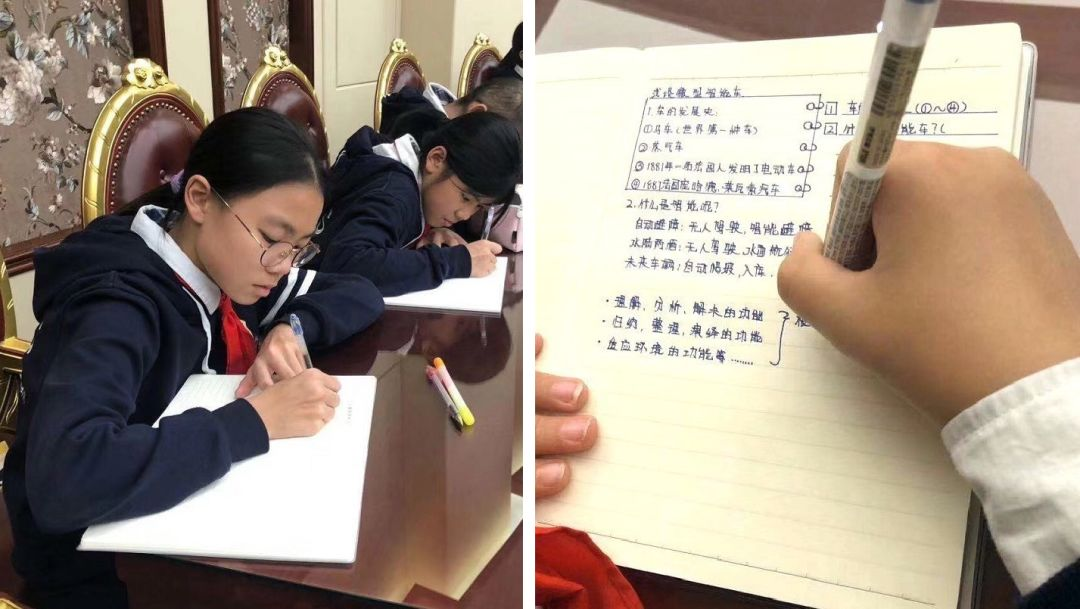 浅谈微型智能车
1.车的发展史:
①马车(世界第一种车)
②蒸汽车
③1881年—法国人发明了电动车
④1887法国
2.什么是智能呢?
自动避障:无人驾驶,智能避障
水陆两栖:无人驾驶,水面航行
未来车辆:自动爬坡,入库.
·理解、分析、解决的功能
·归纳、整理、演绎的功能
·适应环境的功能等……
1 车 (①~④)
2 什 能车?(